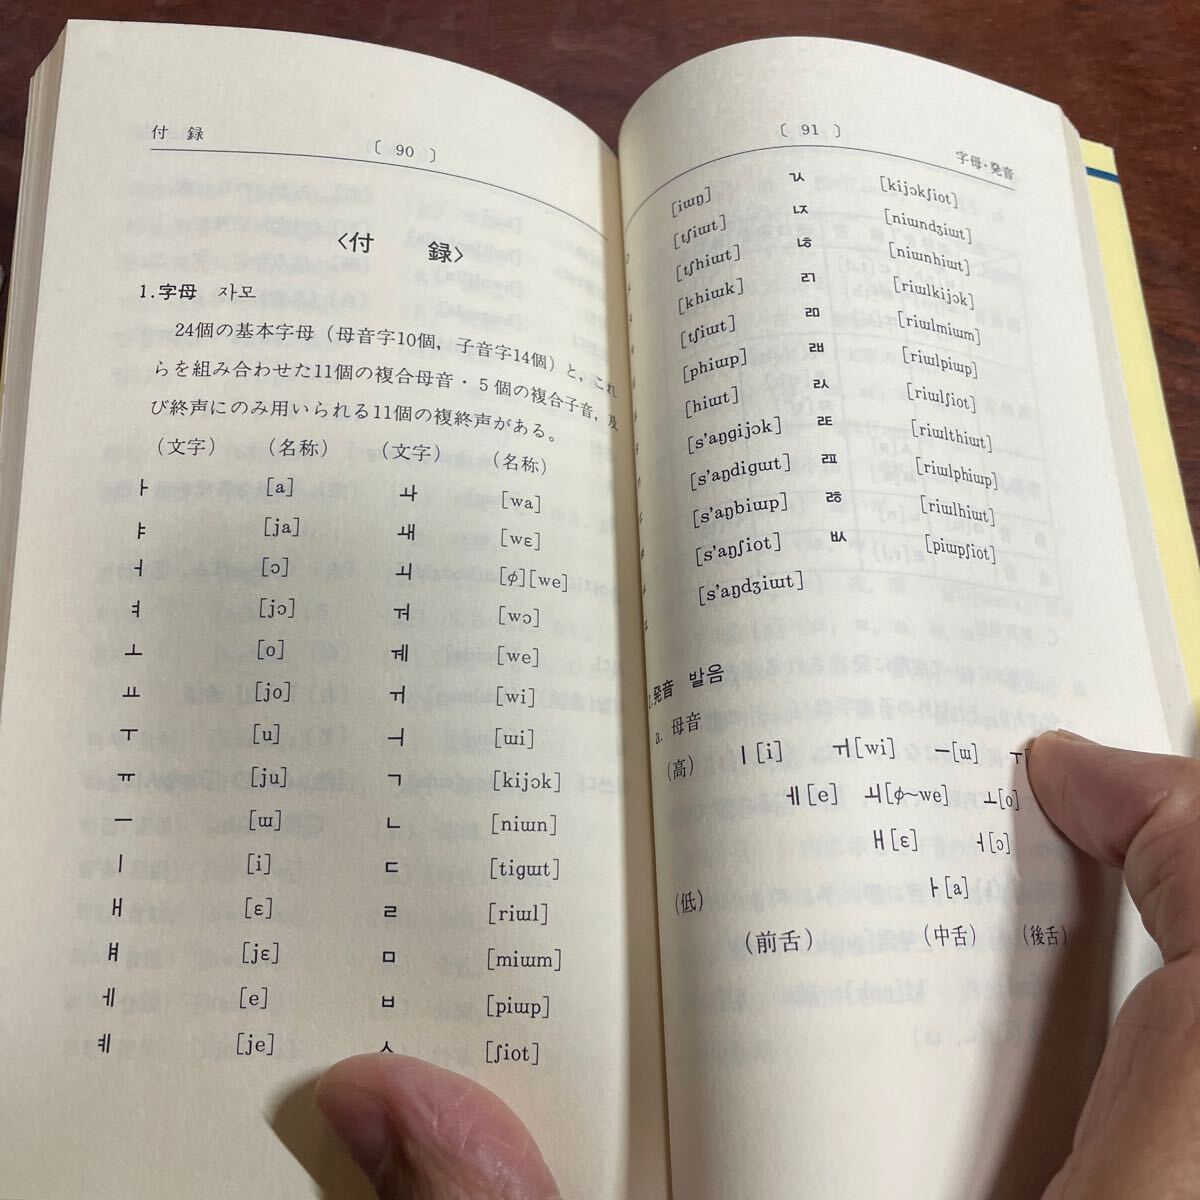 付 録
〔 90 〕
〈付 録〉
1.字母 자모
24個の基本字母（母音字10個，子音字14個）と，これ
らを組み合わせた11個の複合母音・5個の複合子音，及
び終声にのみ用いられる11個の複終声がある。
（文字） （名称） （文字） （名称）
ㅏ [a] ㅘ [wa]
ㅑ [ja] ㅙ [wɛ]
ㅓ [ɔ] ㅚ [ø][we]
ㅕ [jɔ] ㅝ [wɔ]
ㅗ [o] ㅞ [we]
ㅛ [jo] ㅟ [wi]
ㅜ [u] ㅢ [ɯi]
ㅠ [ju] ㄱ [kijɔk]
ㅡ [ɯ] ㄴ [niɯn]
ㅣ [i] ㄷ [tigɯt]
ㅐ [ɛ] ㄹ [riɯl]
ㅒ [jɛ] ㅁ [miɯm]
ㅔ [e] ㅂ [piɯp]
ㅖ [je] ㅅ [ʃiot]
〔 91 〕
字母・発音
[iɯŋ] ㄳ [kijɔkʃiot]
[tʃiɯt] ㄵ [niɯndʒiɯt]
[tʃhiɯt] ㄶ [niɯnhiɯt]
[khiɯk] ㄺ [riɯlkijɔk]
[tʃiɯt] ㄻ [riɯlmiɯm]
[phiɯp] ㄼ [riɯlpiɯp]
[hiɯt] ㄽ [riɯlʃiot]
[s'aŋgijɔk] ㄾ [riɯlthiɯt]
[s'aŋdigɯt] ㄿ [riɯlphiɯp]
[s'aŋbiɯp] ㅀ [riɯlhiɯt]
[s'aŋʃiot] ㅄ [piɯpʃiot]
[s'aŋdʒiɯt]
2.発音 발음
a. 母音
（高） ㅣ[i] ㅟ[wi] ㅡ[ɯ] ㅜ[
ㅔ[e] ㅚ[ø～we] ㅗ[o]
ㅐ[ɛ] ㅓ[ɔ]
（低） ㅏ[a]
（前舌） （中舌） （後舌）